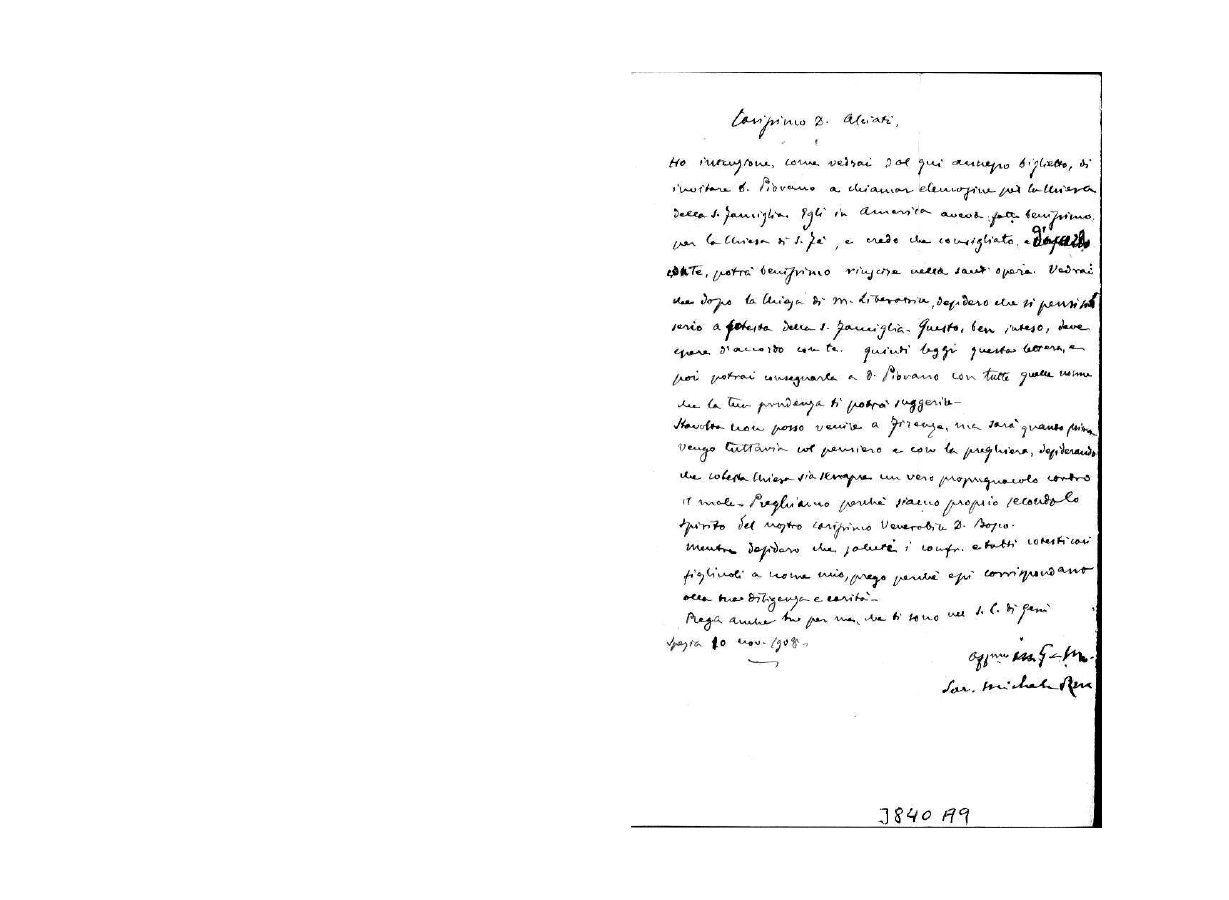 Carissimo D. Alciati,
Ho intenzione, come vedrai dal qui annesso biglietto, di
invitare D. Piovano a chiamar elemosine per la Chiesa
della S. Famiglia. Egli in America aveva fatto benissimo,
per la Chiesa di S. Fè, e credo che consigliato, e
da te, potrà benissimo riuscire nella sant'opera. Vedrai
che dopo la Chiesa di M. Liberatrice, desidero che si pensi sul
serio a cotesta della S. Famiglia. Questo, ben inteso, deve
essere d'accordo con te. Quindi leggi questa lettera, e
poi potrai consegnarla a D. Piovano con tutte quelle norme
che la tua prudenza ti potrà suggerire-
Stavolta non posso venire a Firenze, ma sarà quanto prima
vengo tuttavia col pensiero e con la preghiera, desiderando
che cotesta Chiesa sia sempre un vero propugnacolo contro
il male. Preghiamo perchè siamo proprio secondo lo
spirito del nostro carissimo Venerabile D. Bosco.
Mentre desidero che saluti i confr. e tutti cotesti cari
figliuoli a nome mio, prego perchè essi corrispondano
alla tua diligenza e carità-
Prega anche tu per me, che ti sono nel S. C. di Gesù
Spezia 10 nov. 1908.
affmo in G. e M.
Sac. Michele Rua
J840 A9